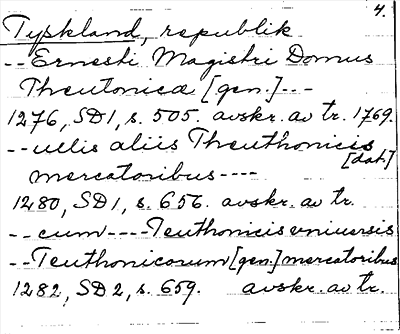 4.
Tyskland, republik
-- Ernesti Magistri Domus
Theutonicæ [gen.] --
1276, SD1, s. 505. avskr. av tr. 1769.
-- uellis aliis Theuthonicis
[dat.]
mercatoribus ----
1280, SD1, s. 656. avskr. av tr.
-- cum ---- Teuthonicis vniuersis
-- Teuthonicorum [gen.] mercatoribus
1282, SD2, s. 659. avskr. av tr.